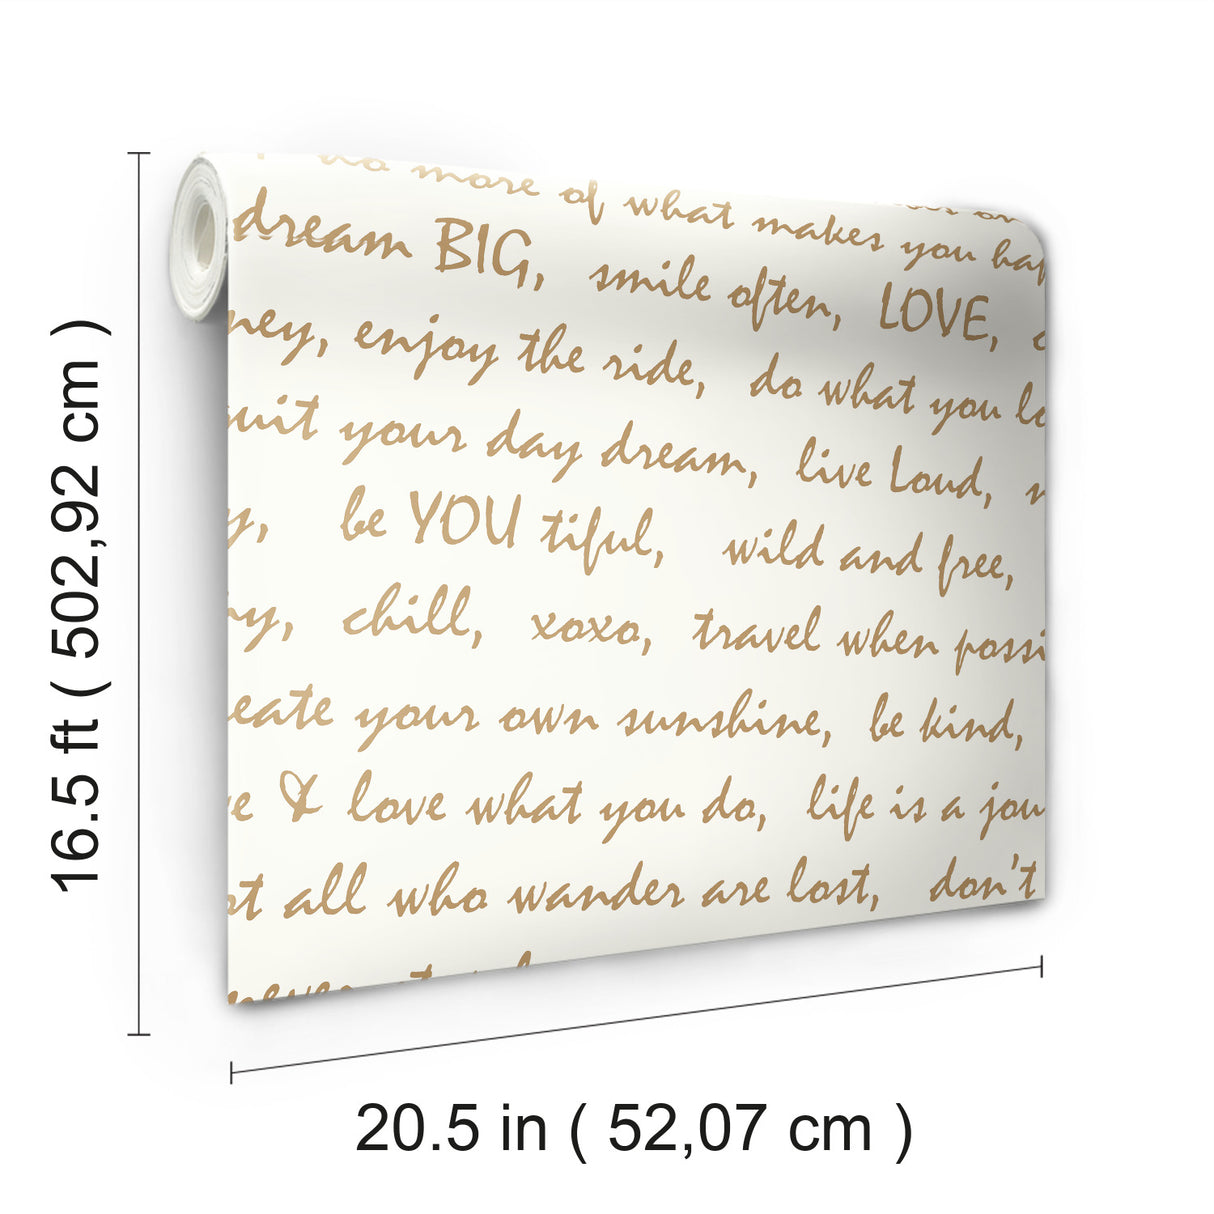 do more of what makes you hap
dream BIG, smile often, LOVE,
ney, enjoy the ride, do what you lo
uit your day dream, live Loud,
y, be YOU tiful, wild and free,
hy, chill, xoxo, travel when possi
eate your own sunshine, be kind,
e & love what you do, life is a jou
ot all who wander are lost, don't
never
16.5 ft ( 502,92 cm )
20.5 in ( 52,07 cm )